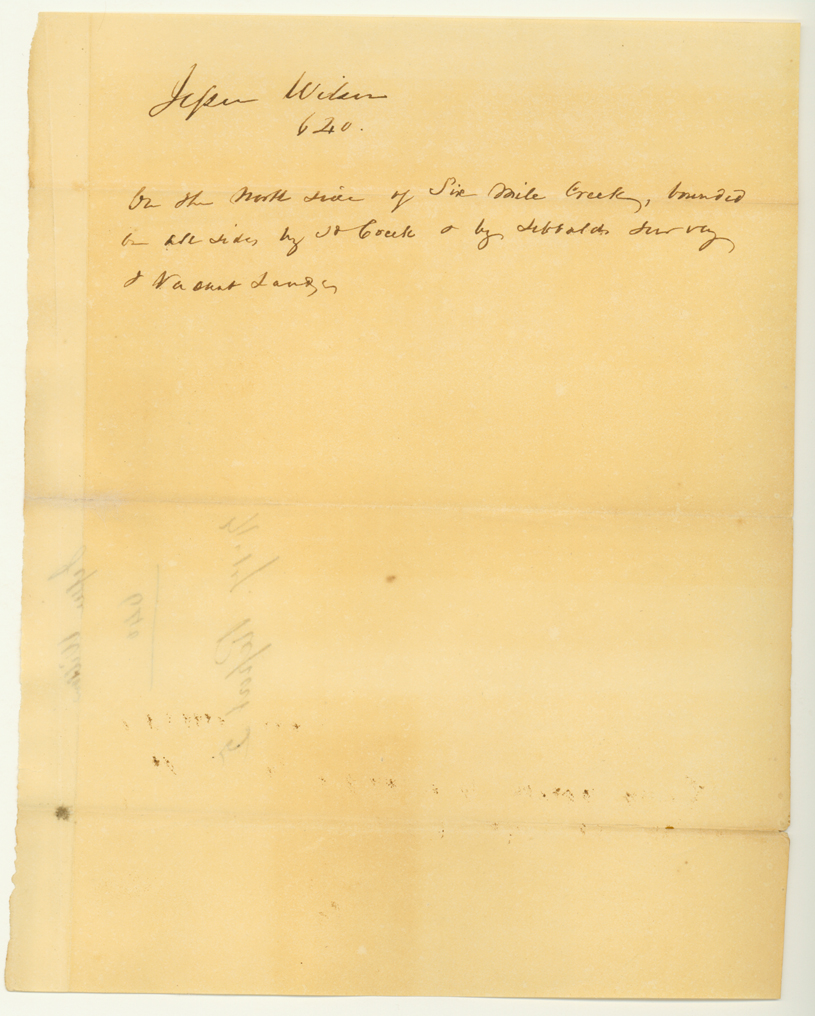 Jesse Wilson
640.
On the North side of Six Mile Creek, bounded
on all sides by sd Creek & by Sibbalds Survey
& Vacant Lands
640